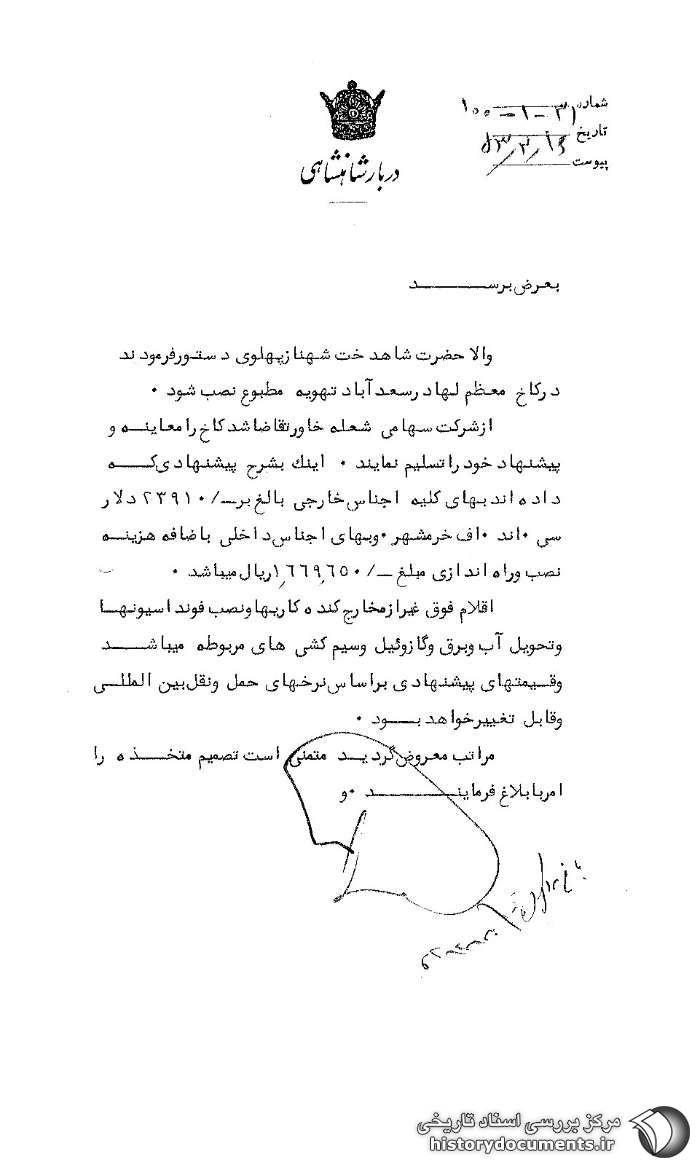 شماره ۳۱-۱-۱۰۰
تاریخ
پیوست
دربار شاهنشاهی
بعرض برسـد
والا حضرت شاهدخت شهناز پهلوی دستور فرمودند
در کاخ معظم لها در سعد آباد تهویه مطبوع نصب شود ۰
از شرکت سهامی شعله خاور تقاضا شد کاخ را معاینه و
پیشنهاد خود را تسلیم نمایند ۰ اینك بشرح پیشنهادی که
داده اند بهای کلیه اجناس خارجی بالغ بر -/۲۳۹۱۰ دلار
سی ۰اند ۰اف خرمشهر ۰ وبهای اجناس داخلی باضافه هزینه
نصب وراه اندازی مبلغ -/۱,۶۶۹,۶۵۰ ریال میباشد ۰
اقلام فوق غیر از مخارج کنده کاریها ونصب فوند اسیونها
وتحویل آب وبرق وگازوئیل وسیم کشی های مربوطه میباشد
وقیمتهای پیشنهادی براساس نرخهای حمل ونقل بین المللی
وقابل تغییر خواهد بود ۰
مراتب معروض گردید متمنی است تصمیم متخذه را
امر با بلاغ فرمایند ۰و
مرکز بررسی اسناد تاریخی
historydocuments.ir